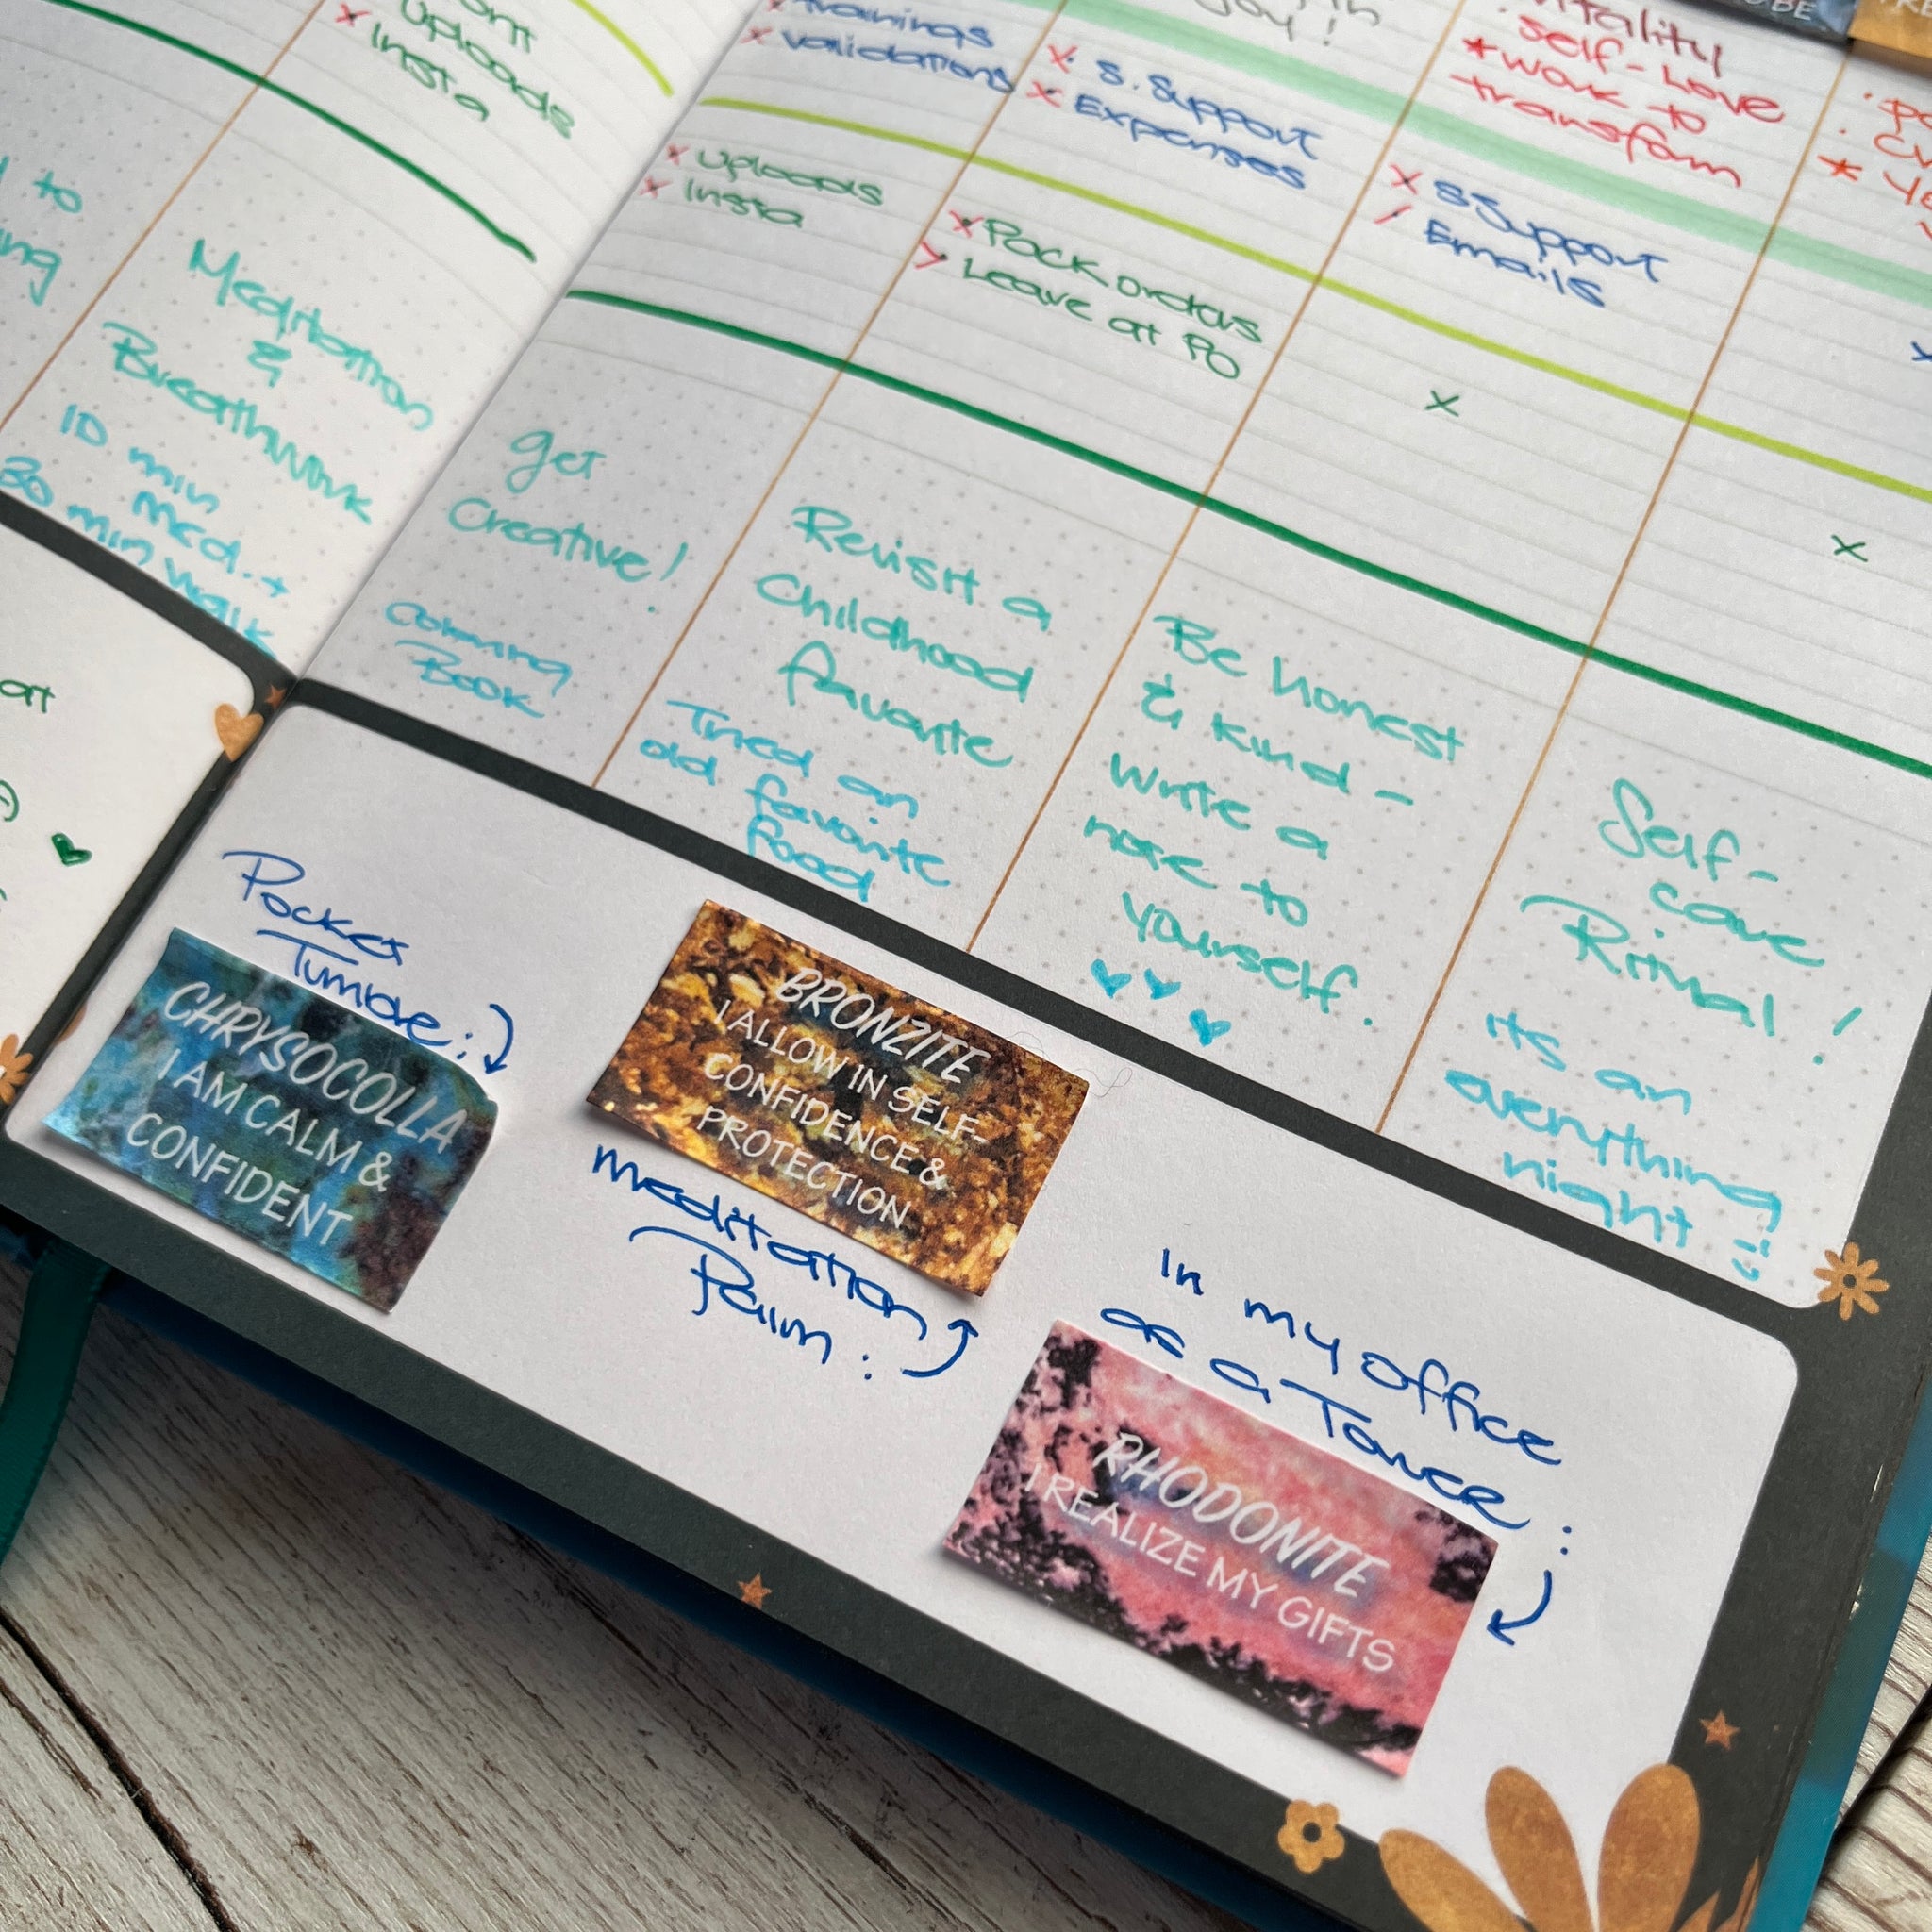 Uploads
Insta
to
Meditation
&
Breathwork
10 min
Med. +
30 min walk
at
trainings
validations
Uploads
Insta
get
Creative!
Coloring
Book
S. Support
Expenses
Pack orders
Leave at PO
Revisit a
Childhood
favorite
Tried an
old favorite
food
joy!
Be honest
& kind -
Write a
note to
yourself.
vitality
self-love
*work to
transform
S. Support
Emails
x
Self-
care
Ritual!
its an
everything
night
x
Pocket
Tumble:
CHRYSOCOLLA
I AM CALM &
CONFIDENT
BRONZITE
I ALLOW IN SELF-
CONFIDENCE &
PROTECTION
meditation
Palm:
In my office
as a Tower:
RHODONITE
I REALIZE MY GIFTS